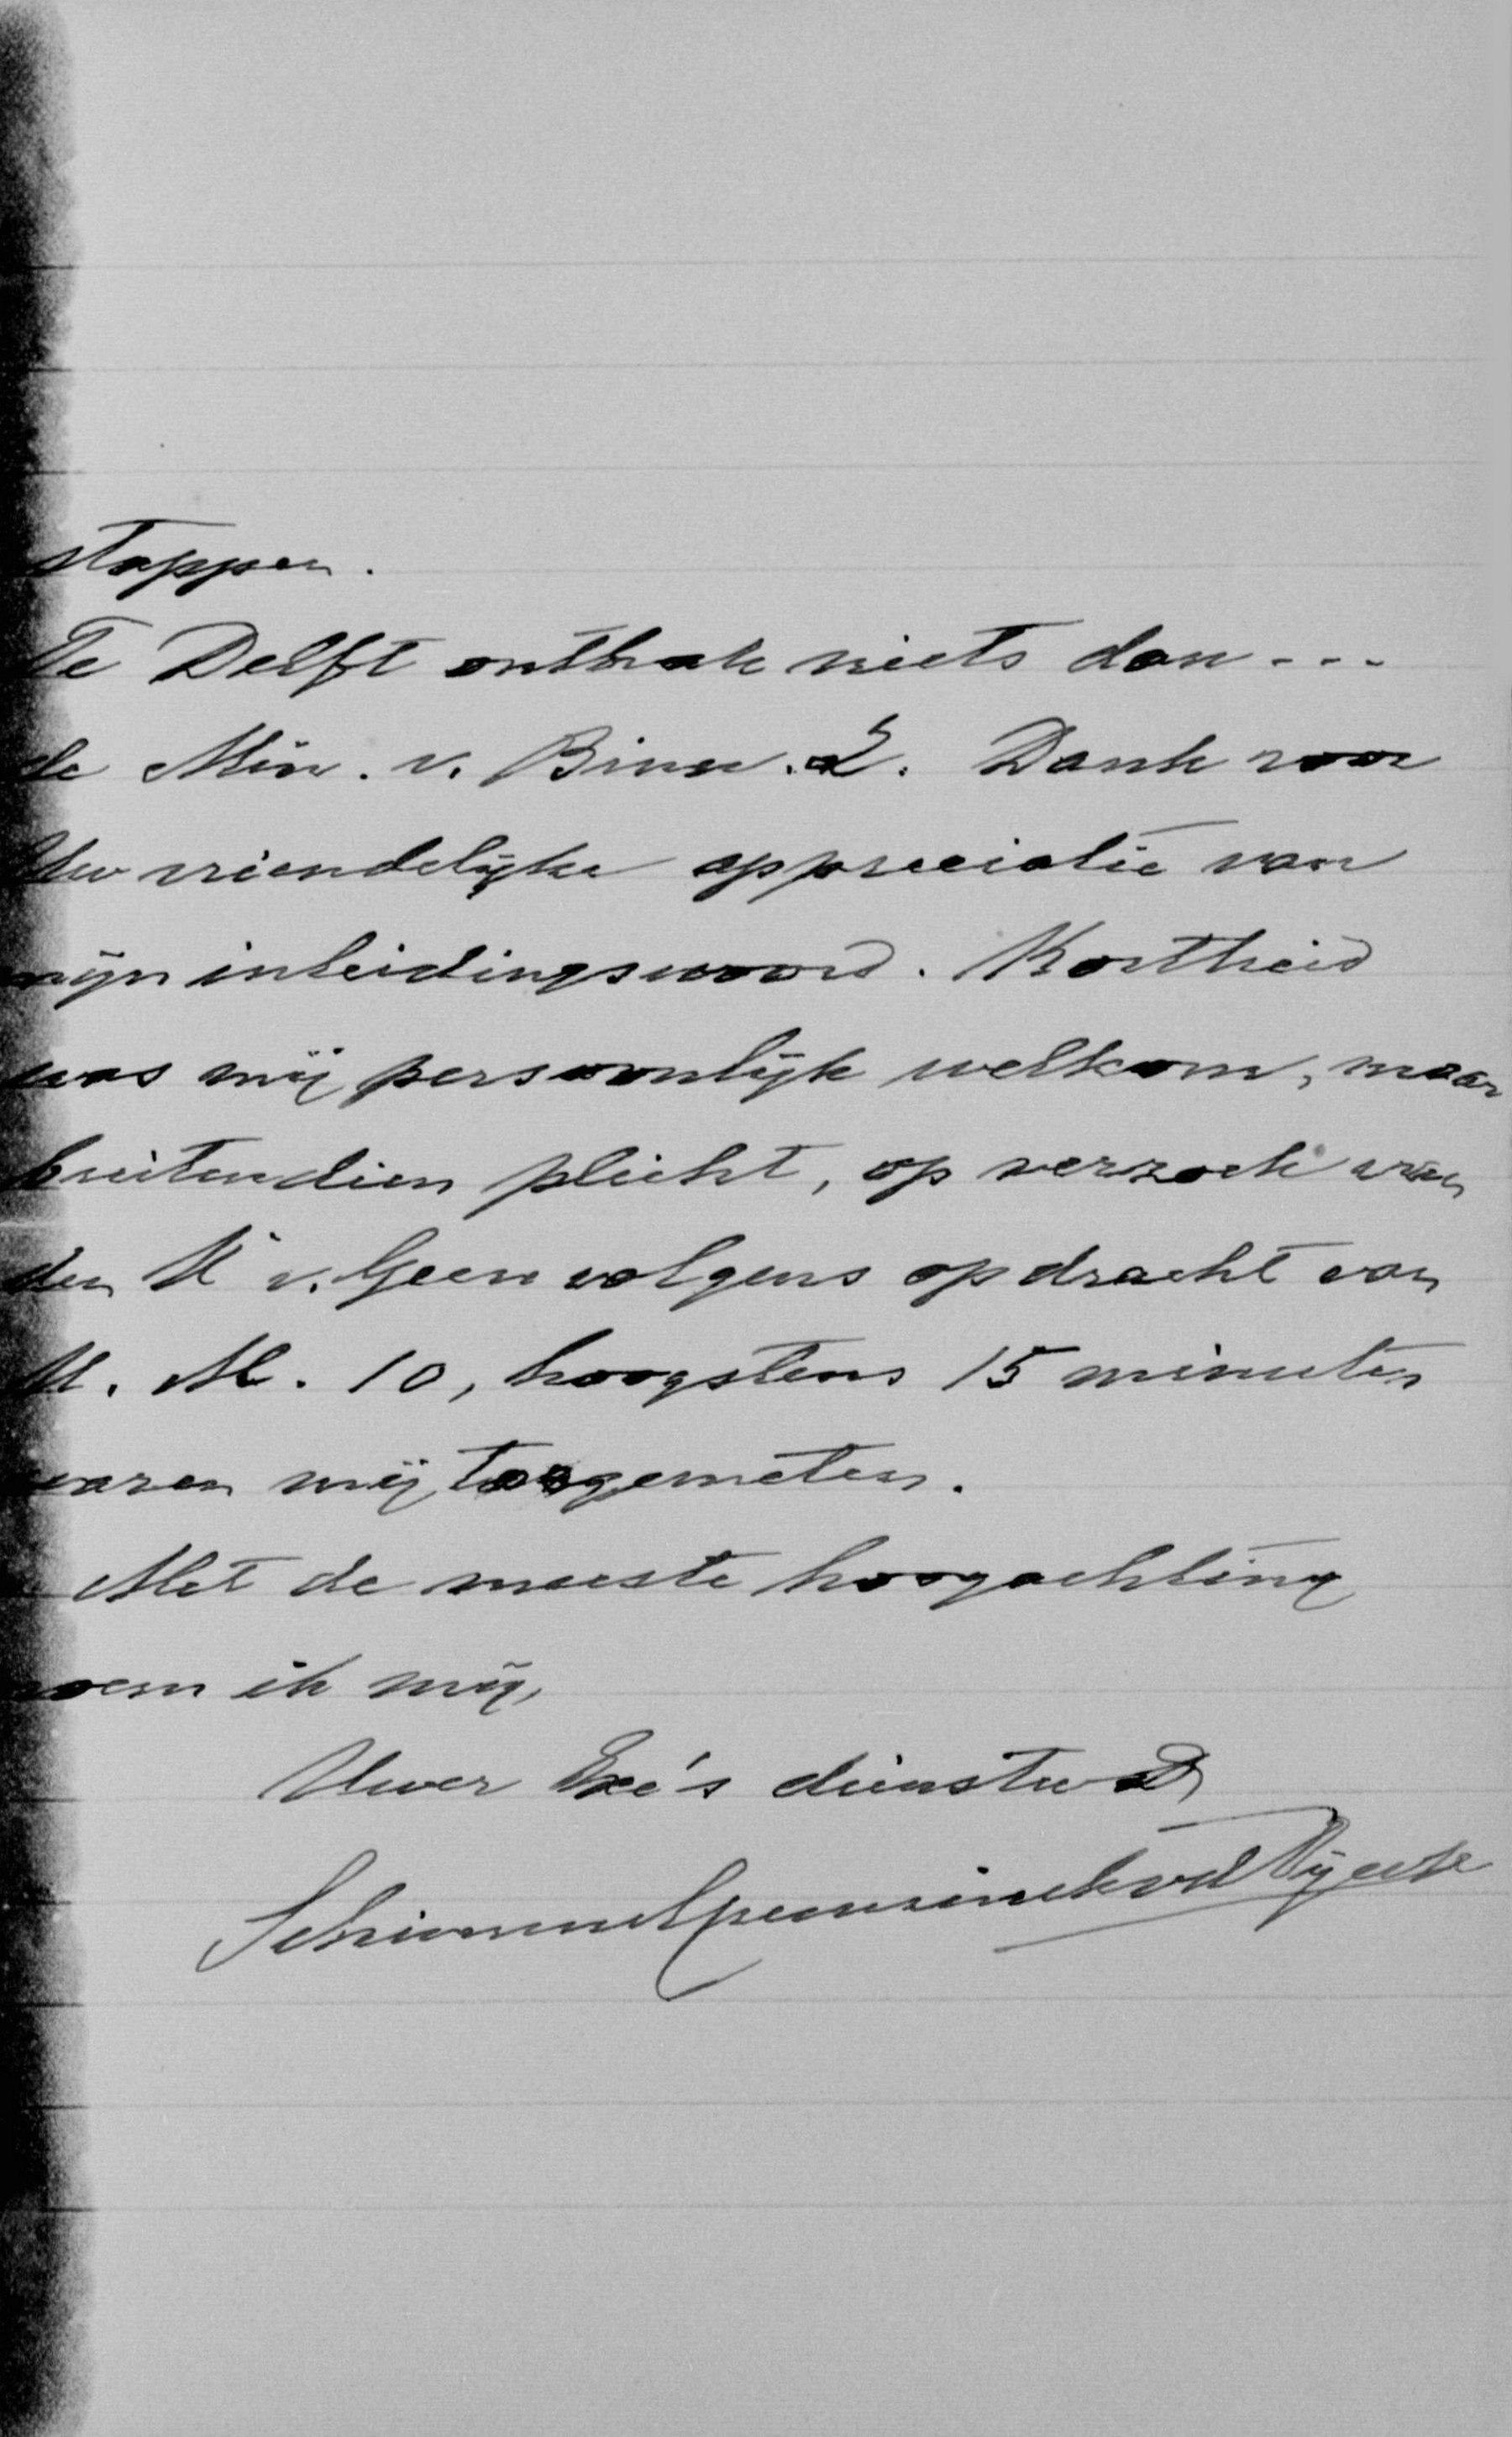 stappen.
Te Delft ontbrak niets dan ---
de Min. v. Binn. Z. Dank voor
Uw vriendelijke appreciatie van
mijn inleidingswoord. Kortheid
was mij persoonlijk welkom, maar
buitendien plicht, op verzoek van
den H v. Geen volgens opdracht van
H. M. 10, hoogstens 15 minuten
waren mij toegemeten.
Met de meeste hoogachting
noem ik mij,
Uwer Exc's dienstw D
Schimmelpenninck vd Oye